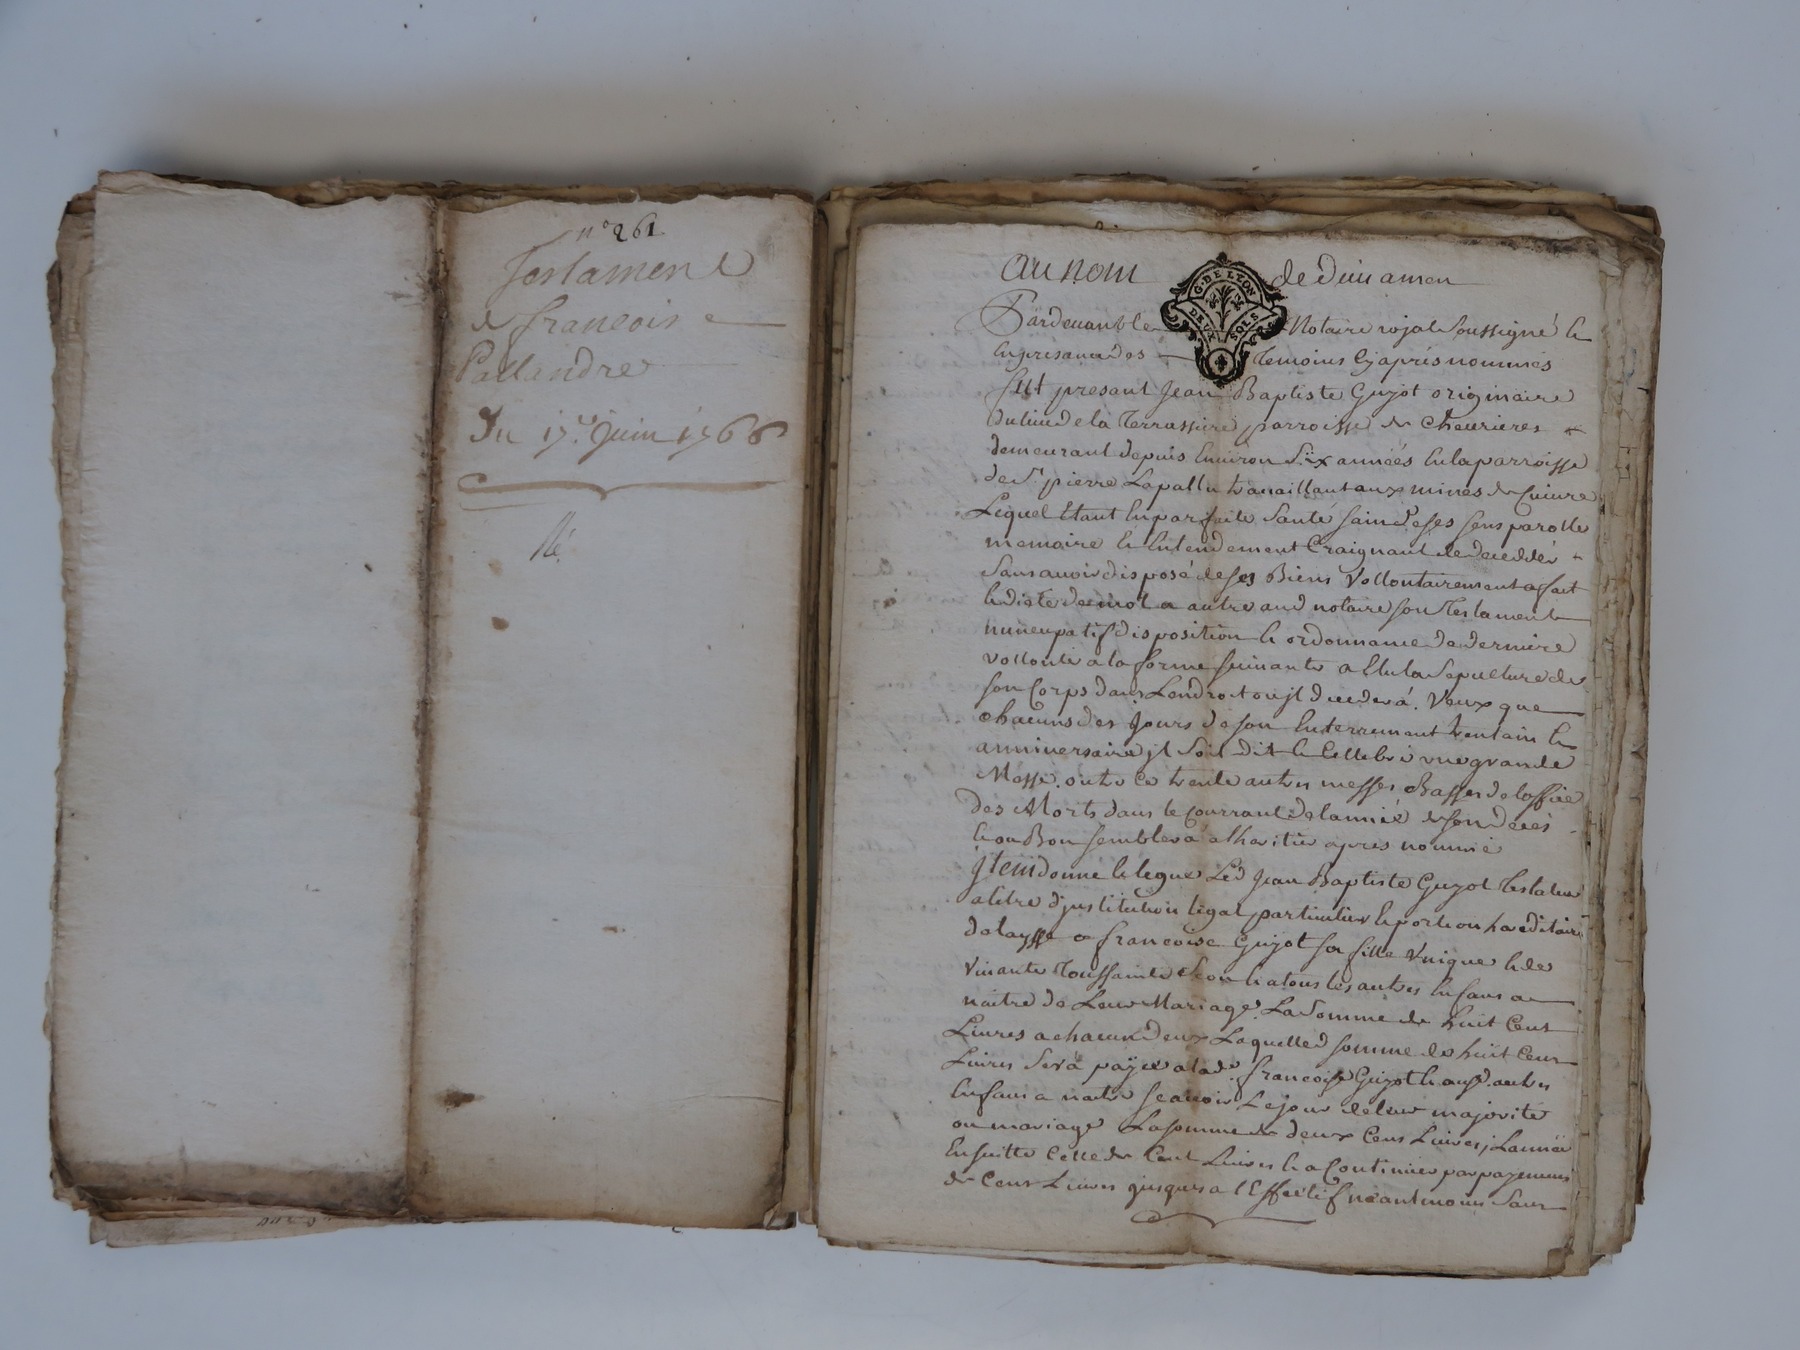 n° 261
Testament
de francois
Pallandre
Du 17e. Juin 1766
Au nom de Dieu amen
G. DE LYON
DEUX SOLS
Pardevant le Notaire royal soussigné &
en presance des temoins cy apres nommés
fut presant Jean Baptiste Guyot originaire
du lieu de la Terrassiere parroisse de Chevrieres
demeurant depuis Environ six années en la parroisse
de St. pierre Lapallu travaillant aux mines de Cuivre
Lequel Etant En parfaite santé sain de ses sens parolle
memoire & Entendement Craignant de decedder
sans avoir disposé de ses Biens Vollontairement a fait
& dicté de mot a autre aud notaire son Testament
nuncupatif disposition & ordonnance de derniere
vollonté a la forme suivante a Elu la sepulture de
son Corps dans Lendroit ou jl decedera. Veux que
chacuns des jours de son Enterrement trentain &
anniversaire jl soit dit & Cellebré une grande
Messe outre ce trente autres messes Basses de loffice
des Morts dans le Courrant de lannée de son deces
& ou Bon semblera a lheritier apres nommé
jtem donne & legue Led Jean Baptiste Guyot testateur
a titre djnstitution legat particulier & portion hereditaire
delaysse a francoise Guyot sa fille Unique & de
Vivante Toussainte & a tous les autres Enfans a
naitre de Leur Mariage La somme de huit Cent
Livres a chacun deux Laquelle d somme de huit Cent
Livres sera payée a lade. francoise Guyot & auxd. autres
Enfans a naitre scavoir Le jour de leur majorité
ou mariage La somme de deux Cens Livres, Lannée
Ensuitte Celle de Cent Livres & a Continuer par payemens
de Cent Livres jusques a lEffectif neantmoins sans